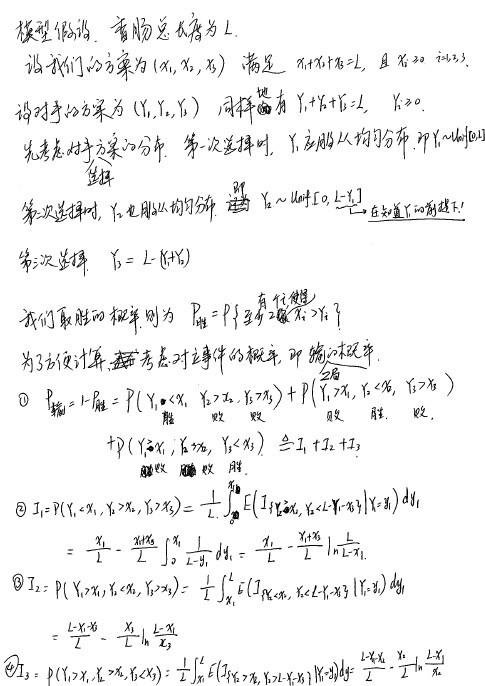 模型假设. 香肠总长度为L.
设我们的方案为(x₁, x₂, x₃) 满足 x₁+x₂+x₃=L, 且 xᵢ≥0 i=1,2,3.
设对手的方案为(Y₁, Y₂, Y₃) 同样地有 Y₁+Y₂+Y₃=L, Yᵢ≥0.
先考虑对手选择方案的分布. 第一次选择时, Y₁应服从均匀分布. 即Y₁~Unif[0,L]
第二次选择时, Y₂也服从均匀分布. 即 Y₂~Unif[0, L-Y₁] → 在知道Y₁的前提下!
第三次选择 Y₃ = L-(Y₁+Y₂)
我们取胜的概率则为 P胜=P{至少有2个 xᵢ>Yᵢ}
为了方便计算, 考虑对立事件的概率, 即输的概率.
① P输=1-P胜= P(Y₁<x₁, Y₂>x₂, Y₃>x₃) + P(Y₁>x₁, Y₂<x₂, Y₃>x₃)
胜 败 败 败 胜. 败.
+P(Y₁>x₁, Y₂>x₂, Y₃<x₃) ≜ I₁+I₂+I₃
败 败 胜.
② I₁=P(Y₁<x₁, Y₂>x₂, Y₃>x₃)= 1/L ∫₀^x₁ E(I{Y₂>x₂, Y₂<L-Y₁-x₃}|Y₁=y₁) dy₁
= x₁/L - (x₂+x₃)/L ∫₀^x₁ 1/(L-y₁) dy₁ = x₁/L - (x₂+x₃)/L ln L/(L-x₁).
③ I₂= P(Y₁>x₁, Y₂<x₂, Y₃>x₃)= 1/L ∫_x₁^L E(I{Y₂<x₂, Y₂<L-Y₁-x₃}|Y₁=y₁) dy₁
= (L-x₁-x₃)/L - x₃/L ln (L-x₁)/x₃
④ I₃= P(Y₁>x₁, Y₂>x₂, Y₃<x₃)= 1/L ∫_x₁^L E(I{Y₂>x₂, Y₂>L-Y₁-x₃}|Y₁=y₁)dy₁= (L-x₁-x₂)/L - x₂/L ln (L-x₁)/x₂